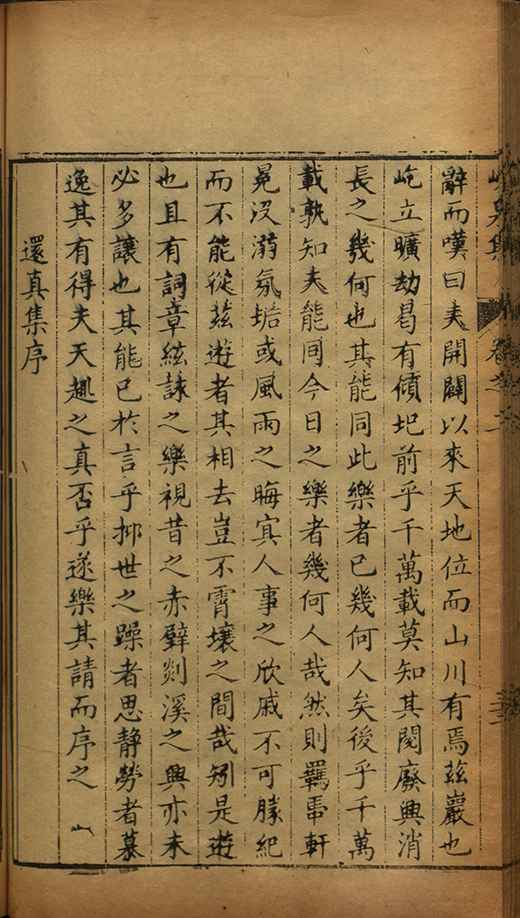 辭而嘆曰夫開闢以來天地位而山川有焉茲巖也
屹立曠劫曷有傾圯前乎千萬載莫知其閱廢興消
長之幾何也其能同此樂者已幾何人矣後乎千萬
載孰知夫能同今日之樂者幾何人哉然則羈串軒
冕沒溺氛垢或風雨之晦冥人事之欣戚不可勝紀
而不能從茲遊者其相去豈不霄壤之間哉矧是遊
也且有詞章絃詠之樂視昔之赤壁剡溪之興亦未
必多讓也其能已於言乎抑世之躁者思靜勞者慕
逸其有得夫天趣之真否乎遂樂其請而序之
還真集序